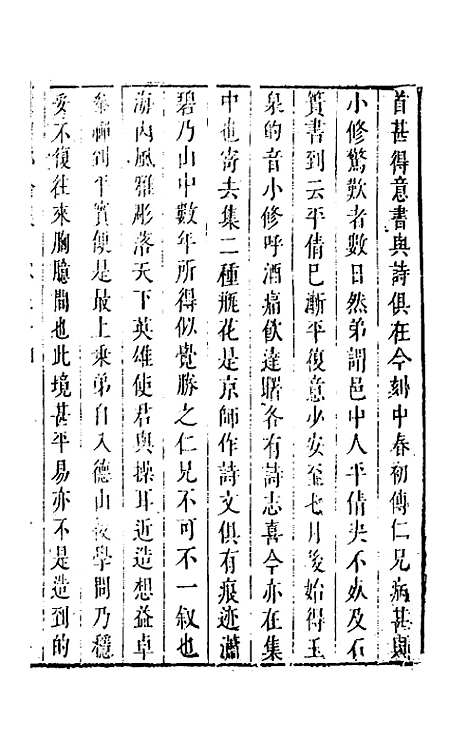 首甚得意書與詩俱在今刻中春初傳仁兄病甚與
小修驚歎者數日然弟謂邑中人平倩决不妖及石
簣書到云平倩已漸平復意少安至七月後始得玉
泉的音小修呼酒痛飲達曙各有詩志喜今亦在集
中也寄去集二種瓶花是京師作詩文俱有痕迹瀟
碧乃山中數年所得似覺勝之仁兄不可不一叙也
海内風雅彫落天下英雄使君與操耳近造想益卓
參禪到平實便是最上乘弟自入德山後學問乃穩
妥不復往來胸臆間也此境甚平易亦不是造到的